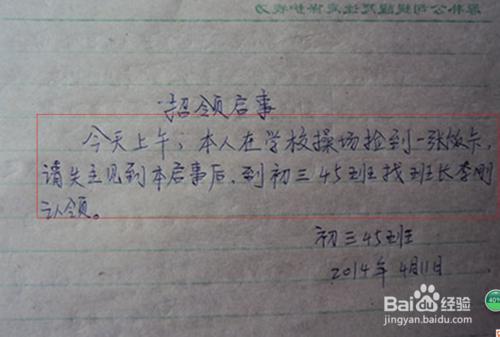 招领启事
今天上午,本人在学校操场捡到一张饭卡,
请失主见到本启事后,到初三45班找班长李刚
认领。
初三45班
2014年4月11日
Baidu经验
jingyan.baidu.com
40%